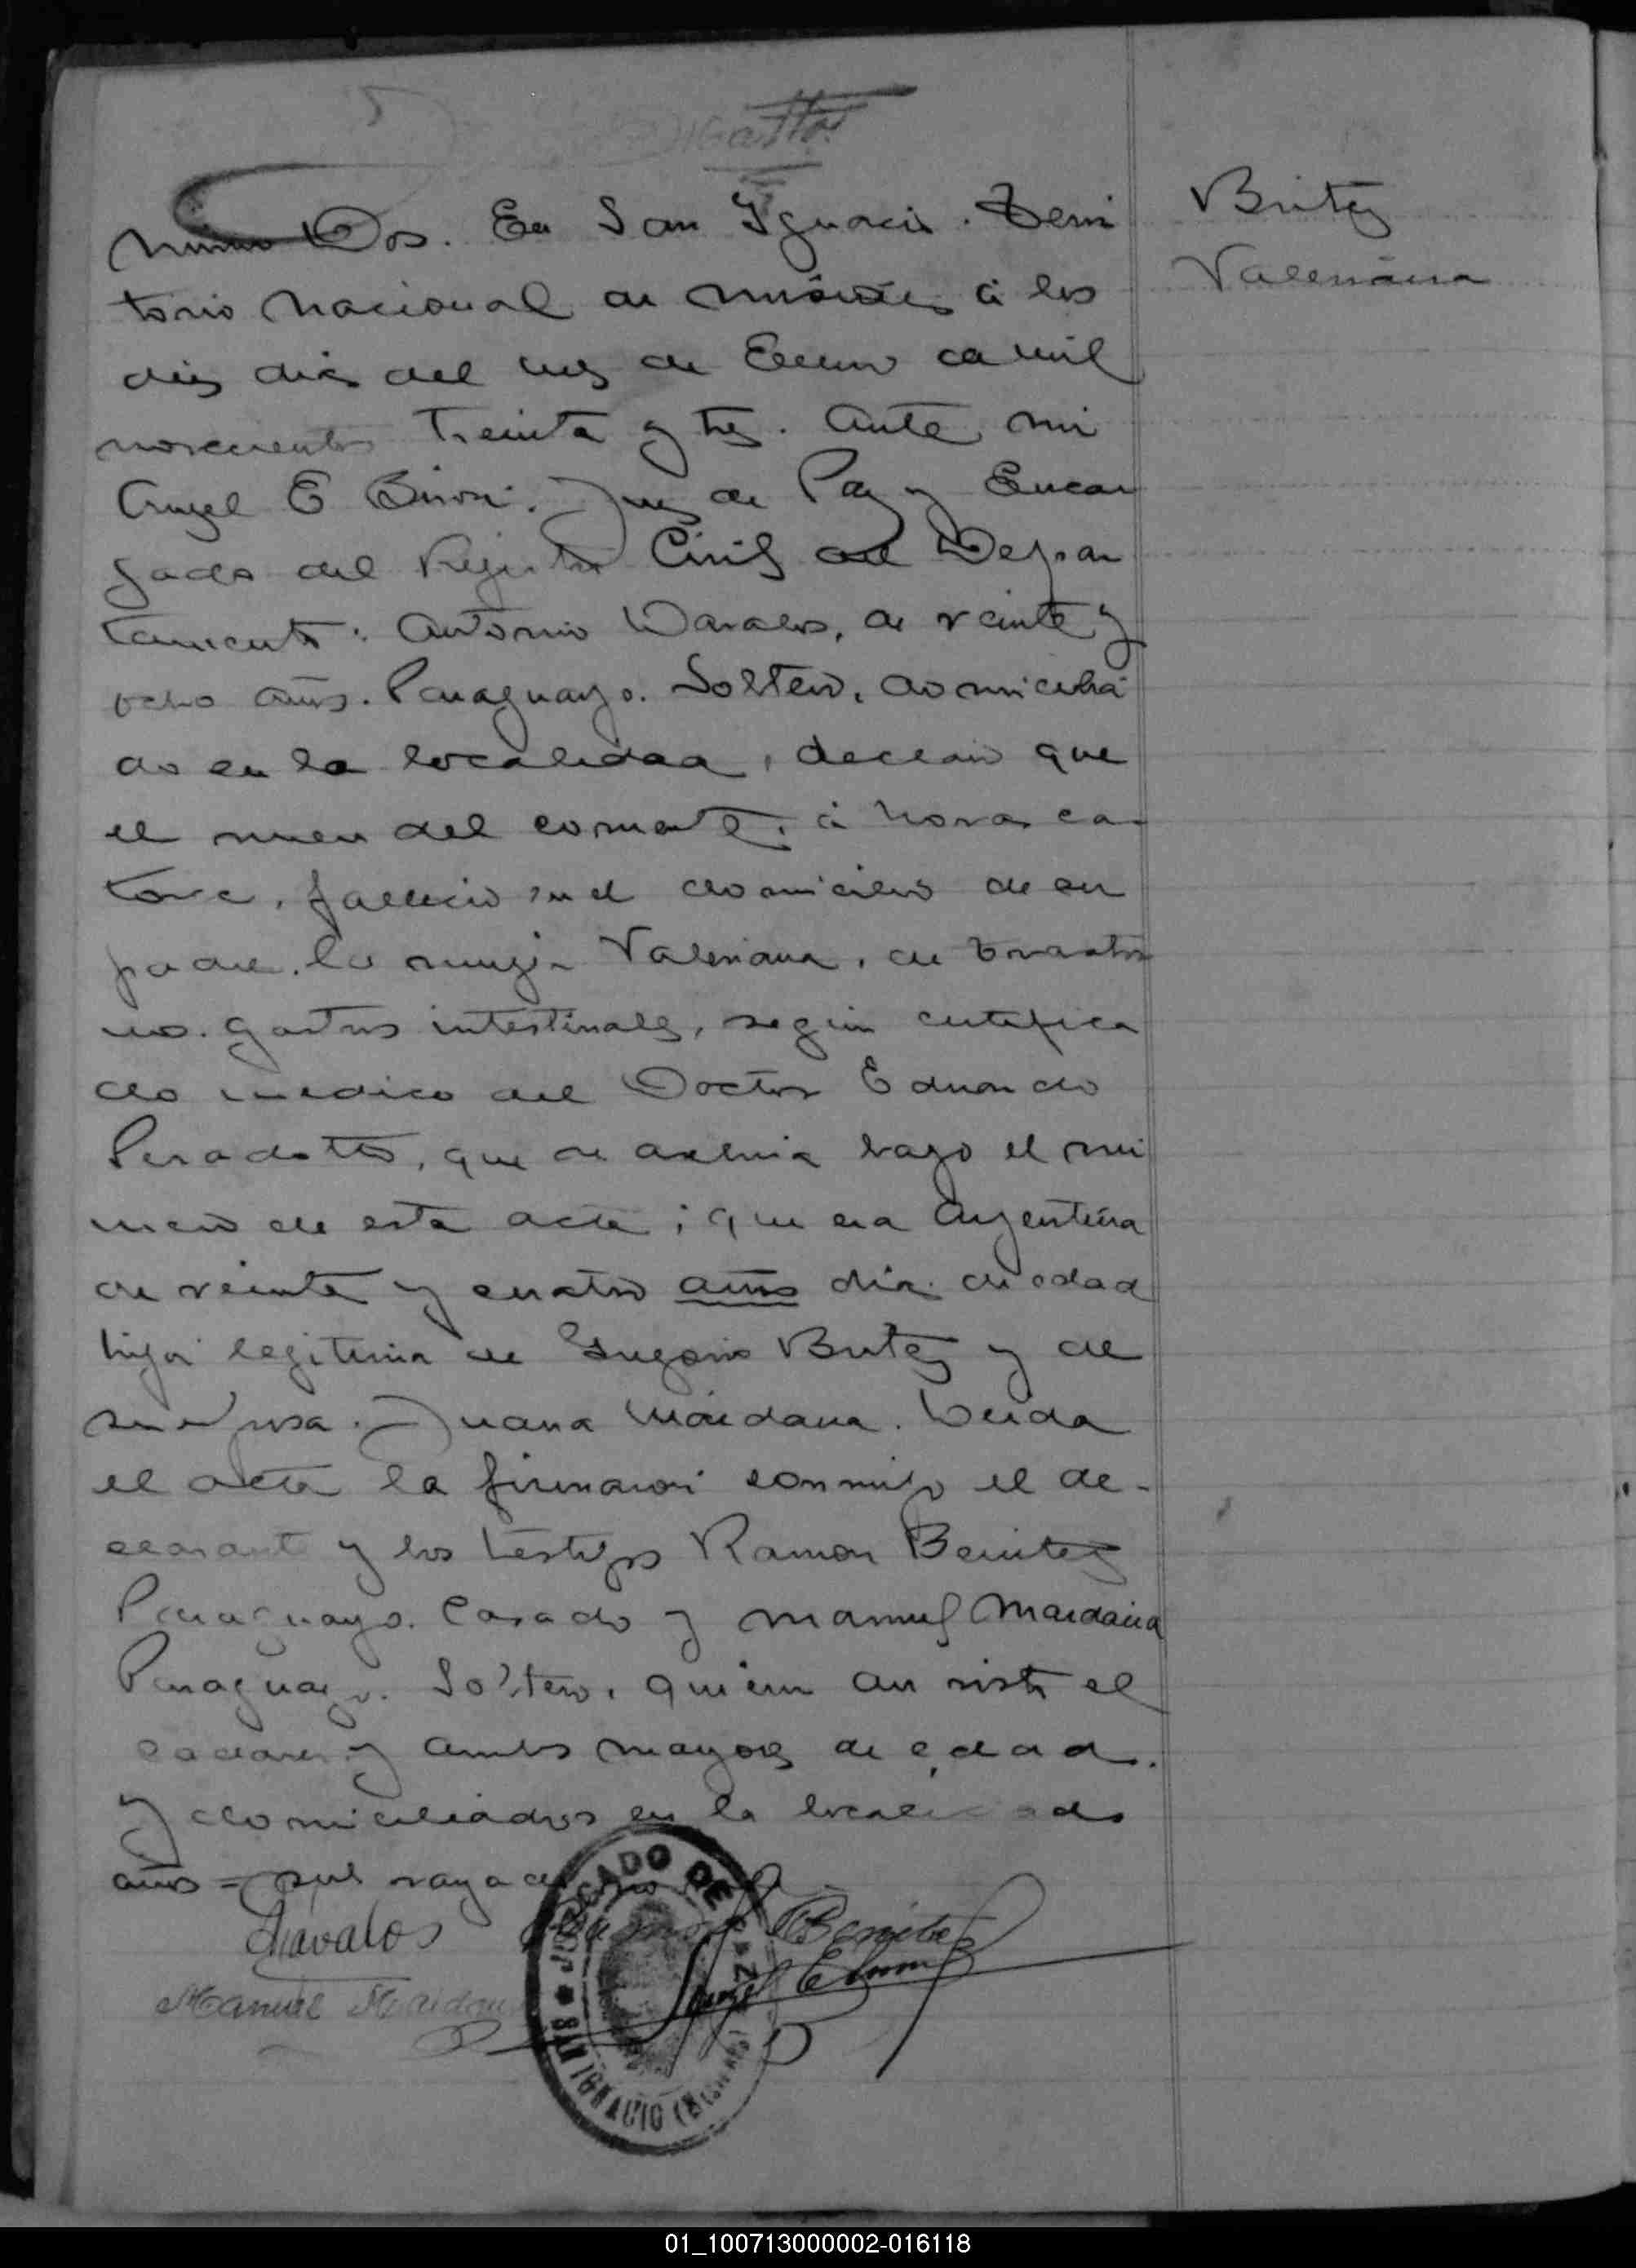 Britez
Valeriana
Número Dos. En San Ignacio. Terri
torio Nacional de Misiones á los
diez dias del mes de Enero de mil
novecientos treinta y tres. Ante mi
Angel E Juez de Paz y Encar
gado del Registro Civil del Depar
tamento: Antonio Davalos, de veinte y
ocho años. Paraguayo. Soltero, domicilia
do en la localidad, declaró que
el nueve del corriente, á horas ca
torce, fallecio en el domicilio de su
padre, la mujer Valeriana, de trastor
nos gastros intestinales, según certifica
do medico del Doctor Eduardo
Peradotto, que se archiva bajo el nú
mero de esta acta; que era Argentina
de veinte y cuatro años dias de edad
hija legitima de Gregorio Britez y de
su esposa Juana Maidana. Leida
el acta la firmaron conmigo el de-
clarante y los testigos Ramon Benitez
Paraguayo. Casado y Manuel Maidana
Paraguayo. Soltero, quienes han visto el
cadaver y ambos mayores de edad.
y domiciliados en la localidad
años = sub rayado
Dávalos
Ramon Benitez
Angel E
Manuel Maidana
JUZGADO DE PAZ
SAN IGNACIO (Misiones)
01_100713000002-016118